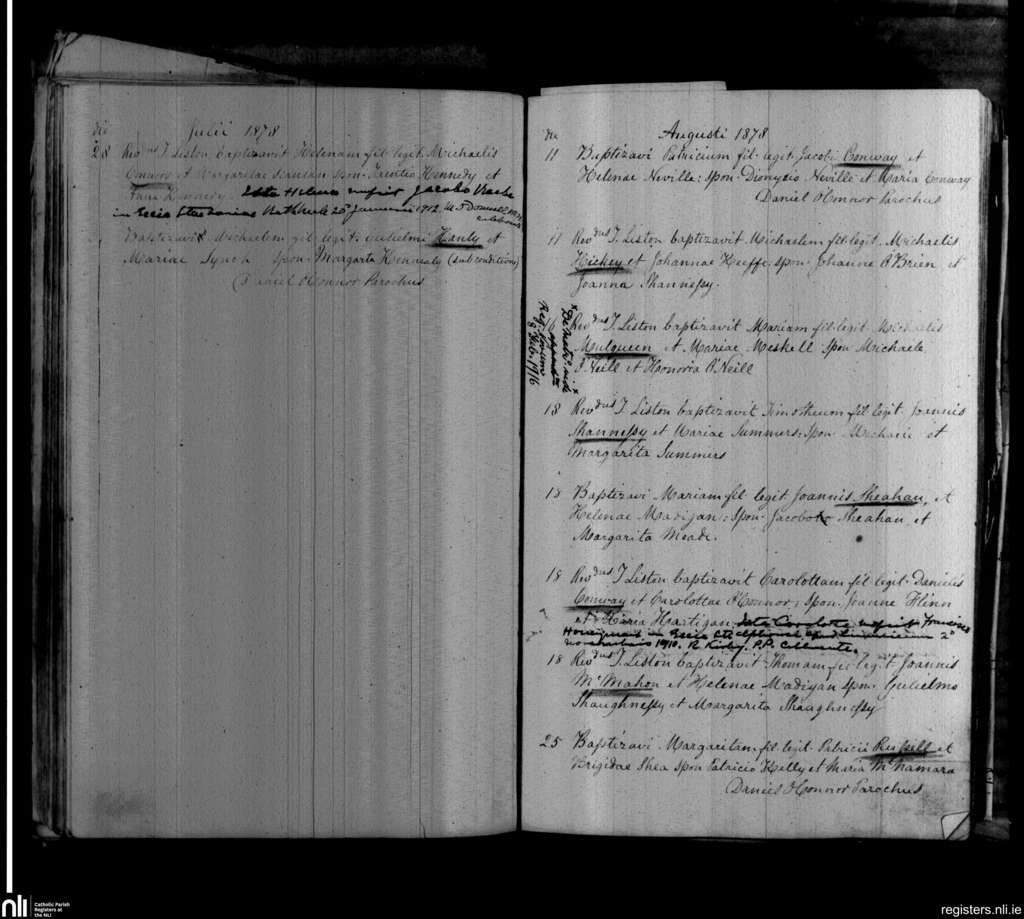 die Julii 1878
28 Revdus T. Liston baptizavit Helenam fil legit. Michaelis
Connors et Margaritae Scanlan spon. Kennedy et
Kennedy. Ista Helena nupsit Jacobo
in 20° Januarii 1912.
Baptizavit Michaelem fil legit. Gulielmi Hanly et
Mariae Lynch spon. Margarta Kenneally (sub conditione)
Daniel O'Connor Parochus
die Augusti 1878
11 Baptizavi Patricium fil. legit. Jacobi Conway et
Helenae Neville: spon. Dionysio Neville et Maria Conway
Daniel O'Connor Parochus
11 Revdus T. Liston baptizavit Michaelem fil. legit. Michaelis
Hickey et Johannae Keeffe, spon. Johanne O'Brien et
Joanna Shannessy.
16 Revdus T. Liston baptizavit Mariam fil. legit. Michaelis
Mulqueen et Mariae Meskell spon Michaele
O'Neill et Honoria O'Neill
8 Feb. 1916
18 Revdus T. Liston baptizavit Timotheum fil legit. Joannis
Shannessy et Mariae Summers: Spon. Michaele et
Margarita Summers
18 Baptizavi Mariam fil legit Joannis Sheahan, et
Helenae Madigan: Spon. Jacobo Sheahan et
Margarita Meade.
18 Revdus T Liston baptizavit Carolottam fil legit. Danielis
Conway et Carolottae O'Connor; spon. Joanne Flinn
et Maria Hartigan. Ista Carolota nupsit Francisco
in 2°
Novembris 1910. R Kirby. P.P.
18 Revdus T. Liston baptizavit Thomam fil legit Joannis
McMahon et Helenae Madigan spon. Gulielmo
Shaughnessy et Margarita Shaughnessy
25 Baptizavi Margaritam fil legit. Patricii Russell et
Brigidae Shea spon Patricio Kelly et Maria McNamara
Daniel O'Connor Parochus
nli Catholic Parish
Registers at
the NLI
registers.nli.ie